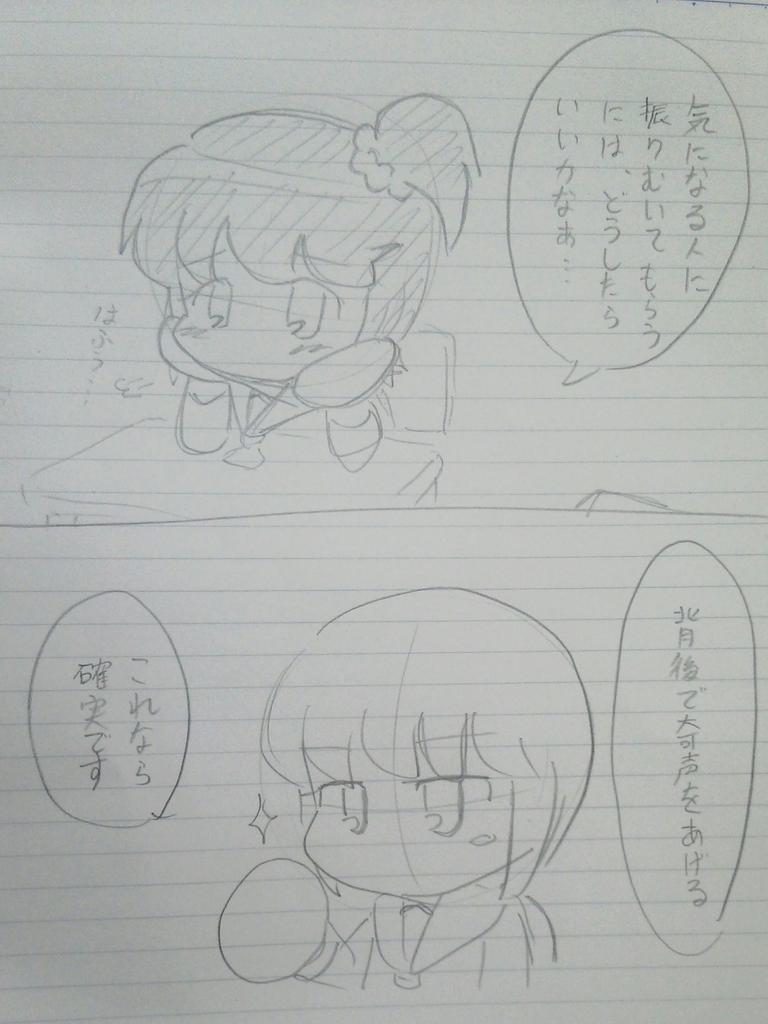 気になる人に
振りむいてもらう
には、どうしたら
いいカなあ…
はふぅ…
背後で大声をあげる
これなら
確実です